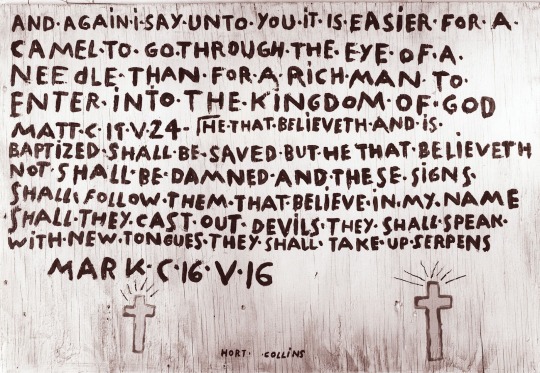 AND·AGAIN·i·SAY·UNTO·YOU·iT·IS·EASIER·FOR·A·
CAMEL·TO·GO·THROUGH·THE·EYE·OF·A·
NEEdLE·THAN·FOR·A·RICH·MAN·TO·
ENTER·iNTO·THE·KiNGDOM·OF·GOD
MATT·C·19·V·24- HE·THAT·BELiEVETH·AND·iS·
BAPTIZED·SHALL·BE·SAVED·BUT·HE·THAT·BELIEVETH
NOT·SHALL·BE·DAMNED·AND·THESE·SIGNS·
SHALL·FOLLOW·THEM·THAT·BELIEVE·IN·MY·NAME
SHALL·THEY·CAST·OUT·DEVILS·THEY·SHALL·SPEAK·
WiTH·NEW·TONGUES·THEY·SHALL·TAKE·UP·SERPENS
MARK·C·16·V·16
HORT· COLLiNS